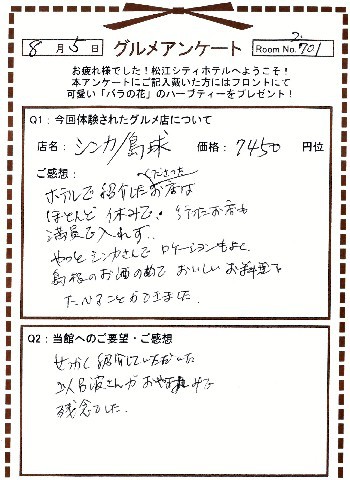 8月5日 グルメアンケート Room No. 2. 701
お疲れ様でした!松江シティホテルへようこそ!
本アンケートにご記入戴いた方にはフロントにて
可愛い「バラの花」のハーブティーをプレゼント!
Q1:今回体験されたグルメ店について
店名:シンカ/島球 価格:7450 円位
ご感想:
ホテルで紹介くださったお店は
ほとんど休みで、行ったお店も
満員で入れず、
やっとシンカさんで ロケーションもよく、
島根のお酒のめて おいしいお料理を
たべることができました。
Q2:当館へのご要望・ご感想
せっかく紹介していただいた
さんがおやすみで
残念でした。